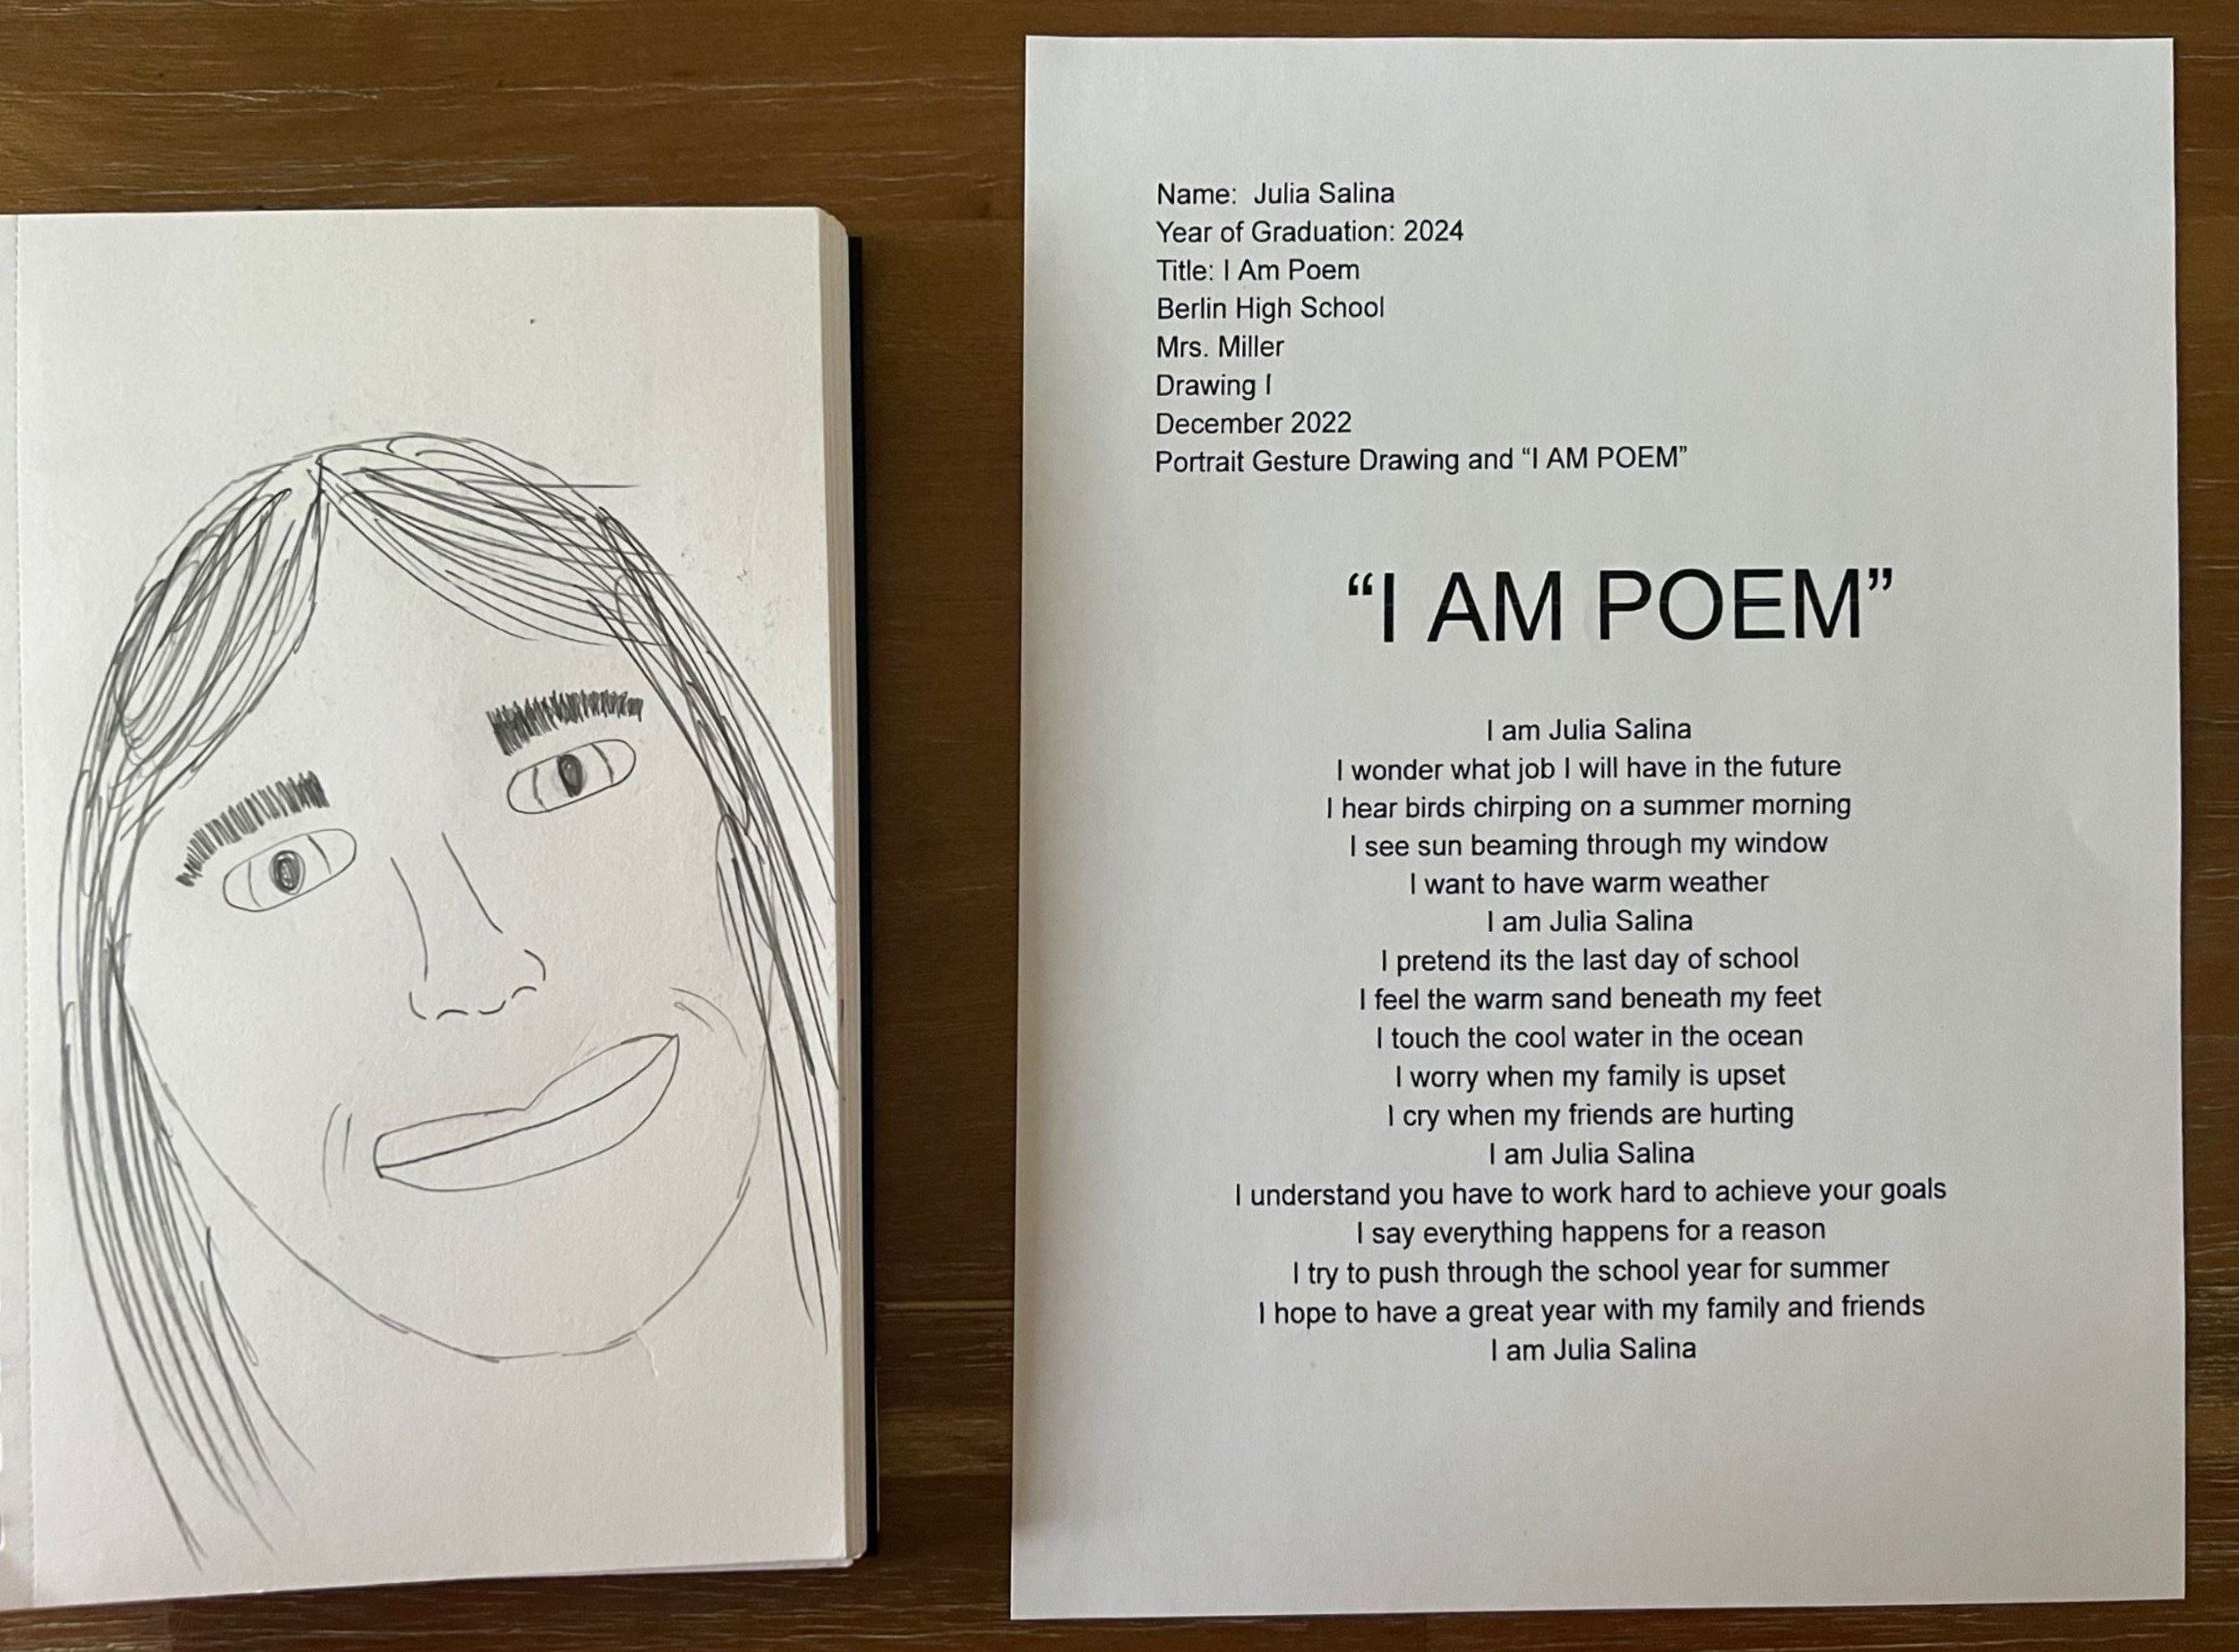 Name:  Julia Salina
Year of Graduation: 2024
Title: I Am Poem
Berlin High School
Mrs. Miller
Drawing I
December 2022
Portrait Gesture Drawing and “I AM POEM”
“I AM POEM”
I am Julia Salina
I wonder what job I will have in the future
I hear birds chirping on a summer morning
I see sun beaming through my window
I want to have warm weather
I am Julia Salina
I pretend its the last day of school
I feel the warm sand beneath my feet
I touch the cool water in the ocean
I worry when my family is upset
I cry when my friends are hurting
I am Julia Salina
I understand you have to work hard to achieve your goals
I say everything happens for a reason
I try to push through the school year for summer
I hope to have a great year with my family and friends
I am Julia Salina